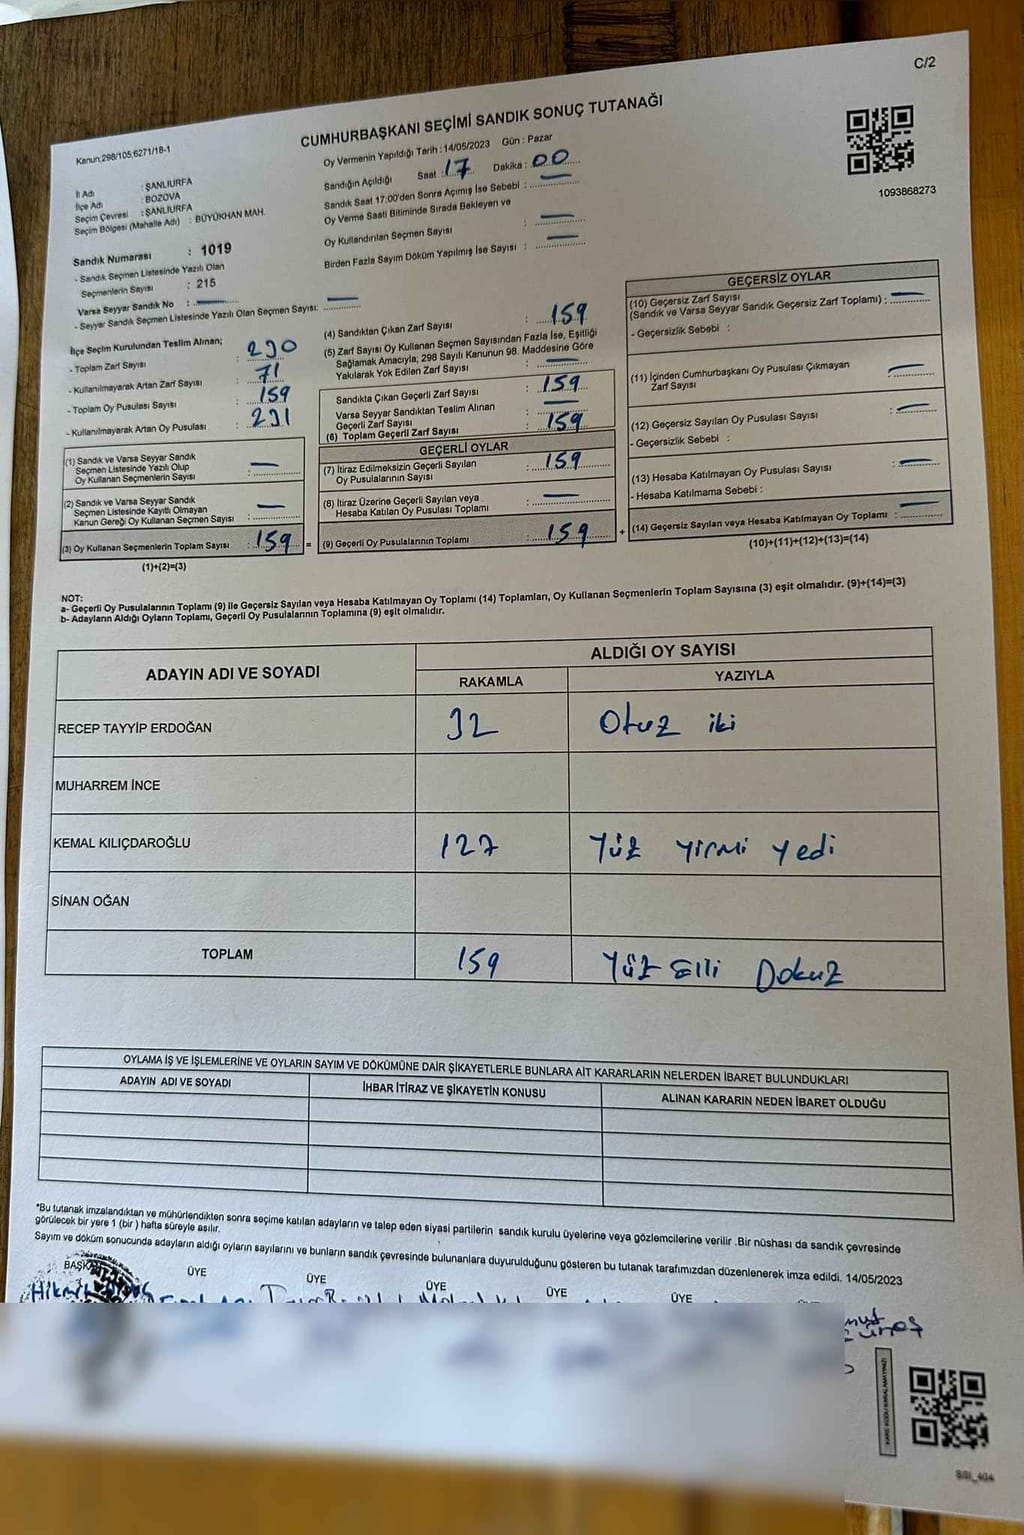 C/2
Kanun,298/105,6271/18-1
CUMHURBAŞKANI SEÇİMİ SANDIK SONUÇ TUTANAĞI
1093868273
İl Adı : ŞANLIURFA
İlçe Adı : BOZOVA
Seçim Çevresi : ŞANLIURFA
Seçim Bölgesi (Mahalle Adı) : BÜYÜKHAN MAH.
Sandık Numarası : 1019
- Sandık Seçmen Listesinde Yazılı Olan
Seçmenlerin Sayısı : 215
Varsa Seyyar Sandık No : —
- Seyyar Sandık Seçmen Listesinde Yazılı Olan Seçmen Sayısı: —
Oy Vermenin Yapıldığı Tarih :14/05/2023 Gün : Pazar
Sandığın Açıldığı Saat : 17 Dakika : 00
Sandık Saat 17:00'den Sonra Açımış İse Sebebi : —
Oy Verme Saati Bitiminde Sırada Bekleyen ve
Oy Kullandırılan Seçmen Sayısı : —
Birden Fazla Sayım Döküm Yapılmış İse Sayısı : —
İlçe Seçim Kurulundan Teslim Alınan;
- Toplam Zarf Sayısı : 230
- Kullanılmayarak Artan Zarf Sayısı : 71
- Toplam Oy Pusulası Sayısı : 159
- Kullanılmayarak Artan Oy Pusulası : 231
(1) Sandık ve Varsa Seyyar Sandık
Seçmen Listesinde Yazılı Olup
Oy Kullanan Seçmenlerin Sayısı : —
(2) Sandık ve Varsa Seyyar Sandık
Seçmen Listesinde Kayıtlı Olmayan
Kanun Gereği Oy Kullanan Seçmen Sayısı : —
(3) Oy Kullanan Seçmenlerin Toplam Sayısı : 159 =
(1)+(2)=(3)
(4) Sandıktan Çıkan Zarf Sayısı : 159
(5) Zarf Sayısı Oy Kullanan Seçmen Sayısından Fazla İse, Eşitliği
Sağlamak Amacıyla; 298 Sayılı Kanunun 98. Maddesine Göre
Yakılarak Yok Edilen Zarf Sayısı : —
Sandıkta Çıkan Geçerli Zarf Sayısı : 159
Varsa Seyyar Sandıktan Teslim Alınan
Geçerli Zarf Sayısı : —
(6) Toplam Geçerli Zarf Sayısı : 159
GEÇERLİ OYLAR
(7) İtiraz Edilmeksizin Geçerli Sayılan
Oy Pusulalarının Sayısı : 159
(8) İtiraz Üzerine Geçerli Sayılan veya
Hesaba Katılan Oy Pusulası Toplamı : —
(9) Geçerli Oy Pusulalarının Toplamı : 159 +
GEÇERSİZ OYLAR
(10) Geçersiz Zarf Sayısı
(Sandık ve Varsa Seyyar Sandık Geçersiz Zarf Toplamı) : —
- Geçersizlik Sebebi :
(11) İçinden Cumhurbaşkanı Oy Pusulası Çıkmayan
Zarf Sayısı : —
(12) Geçersiz Sayılan Oy Pusulası Sayısı : —
- Geçersizlik Sebebi :
(13) Hesaba Katılmayan Oy Pusulası Sayısı : —
- Hesaba Katılmama Sebebi :
(14) Geçersiz Sayılan veya Hesaba Katılmayan Oy Toplamı : —
(10)+(11)+(12)+(13)=(14)
NOT:
a- Geçerli Oy Pusulalarının Toplamı (9) ile Geçersiz Sayılan veya Hesaba Katılmayan Oy Toplamı (14) Toplamları, Oy Kullanan Seçmenlerin Toplam Sayısına (3) eşit olmalıdır. (9)+(14)=(3)
b- Adayların Aldığı Oyların Toplamı, Geçerli Oy Pusulalarının Toplamına (9) eşit olmalıdır.
ADAYIN ADI VE SOYADI
ALDIĞI OY SAYISI
RAKAMLA YAZIYLA
RECEP TAYYİP ERDOĞAN 32 Otuz iki
MUHARREM İNCE
KEMAL KILIÇDAROĞLU 127 Yüz yirmi yedi
SİNAN OĞAN
TOPLAM 159 Yüz Elli Dokuz
OYLAMA İŞ VE İŞLEMLERİNE VE OYLARIN SAYIM VE DÖKÜMÜNE DAİR ŞİKAYETLERLE BUNLARA AİT KARARLARIN NELERDEN İBARET BULUNDUKLARI
ADAYIN ADI VE SOYADI İHBAR İTİRAZ VE ŞİKAYETİN KONUSU ALINAN KARARIN NEDEN İBARET OLDUĞU
*Bu tutanak imzalandıktan ve mühürlendikten sonra seçime katılan adayların ve talep eden siyasi partilerin sandık kurulu üyelerine veya gözlemcilerine verilir .Bir nüshası da sandık çevresinde
görülecek bir yere 1 (bir ) hafta süreyle asılır.
Sayım ve döküm sonucunda adayların aldığı oyların sayılarını ve bunların sandık çevresinde bulunanlara duyurulduğunu gösteren bu tutanak tarafımızdan düzenlenerek imza edildi. 14/05/2023
ÜYE ÜYE ÜYE ÜYE ÜYE
SSI_404